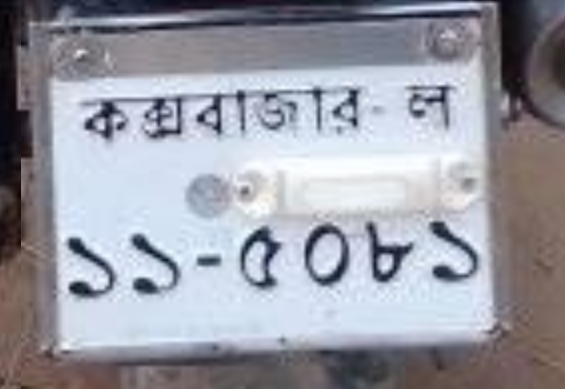 কক্সবাজার-ল
১১-৫০৮১